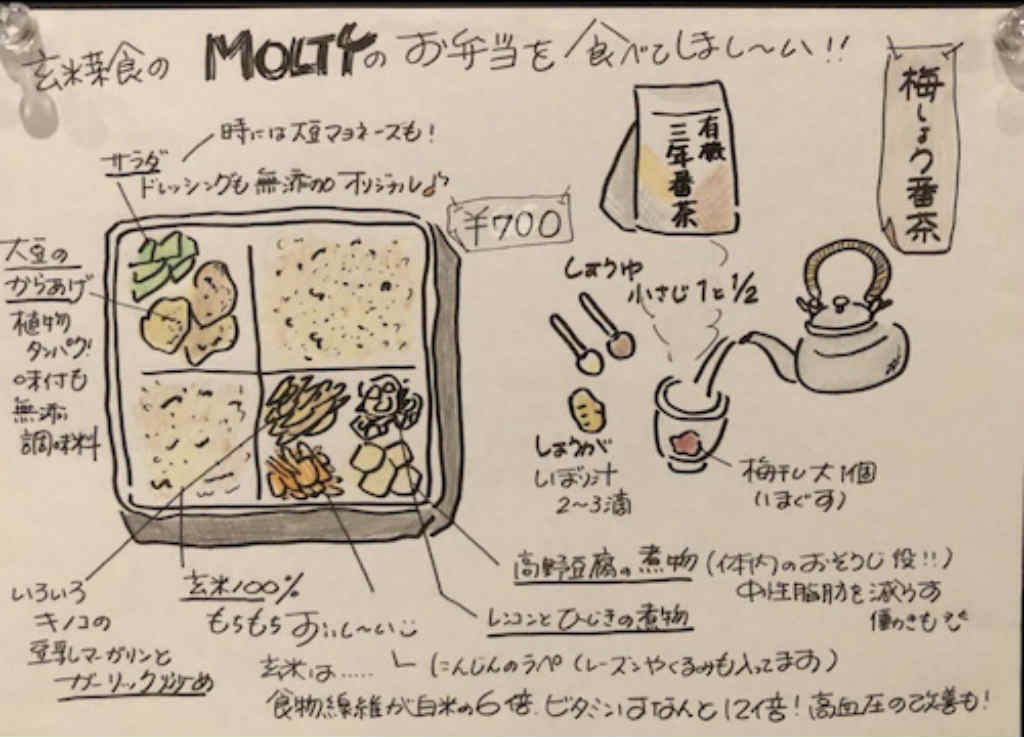 玄米菜食の MOLTYのお弁当を食べてしまし〜い!!
時には大豆マヨネーズも!
サラダ
ドレッシングも無添加オリジナル♪
¥700
大豆の
からあげ
植物
タンパク!
味付も
無添
調味料
いろいろ
キノコの
豆乳マーガリンと
ガーリック炒め
玄米100%
もちもち おいし〜い
高野豆腐の煮物(体内のおそうじ役!!)
中性脂肪を減らす
働きも
レンコンとひじきの煮物
にんじんのラペ(レーズンやくるみも入ってます)
玄米は……
食物繊維が白米の6倍、ビタミンはなんと12倍!高血圧の改善も!
梅しょう番茶
有機
三年番茶
しょうゆ
小さじ1と1/2
しょうが
しぼり汁
2〜3滴
梅干し大1個
(ほぐす)